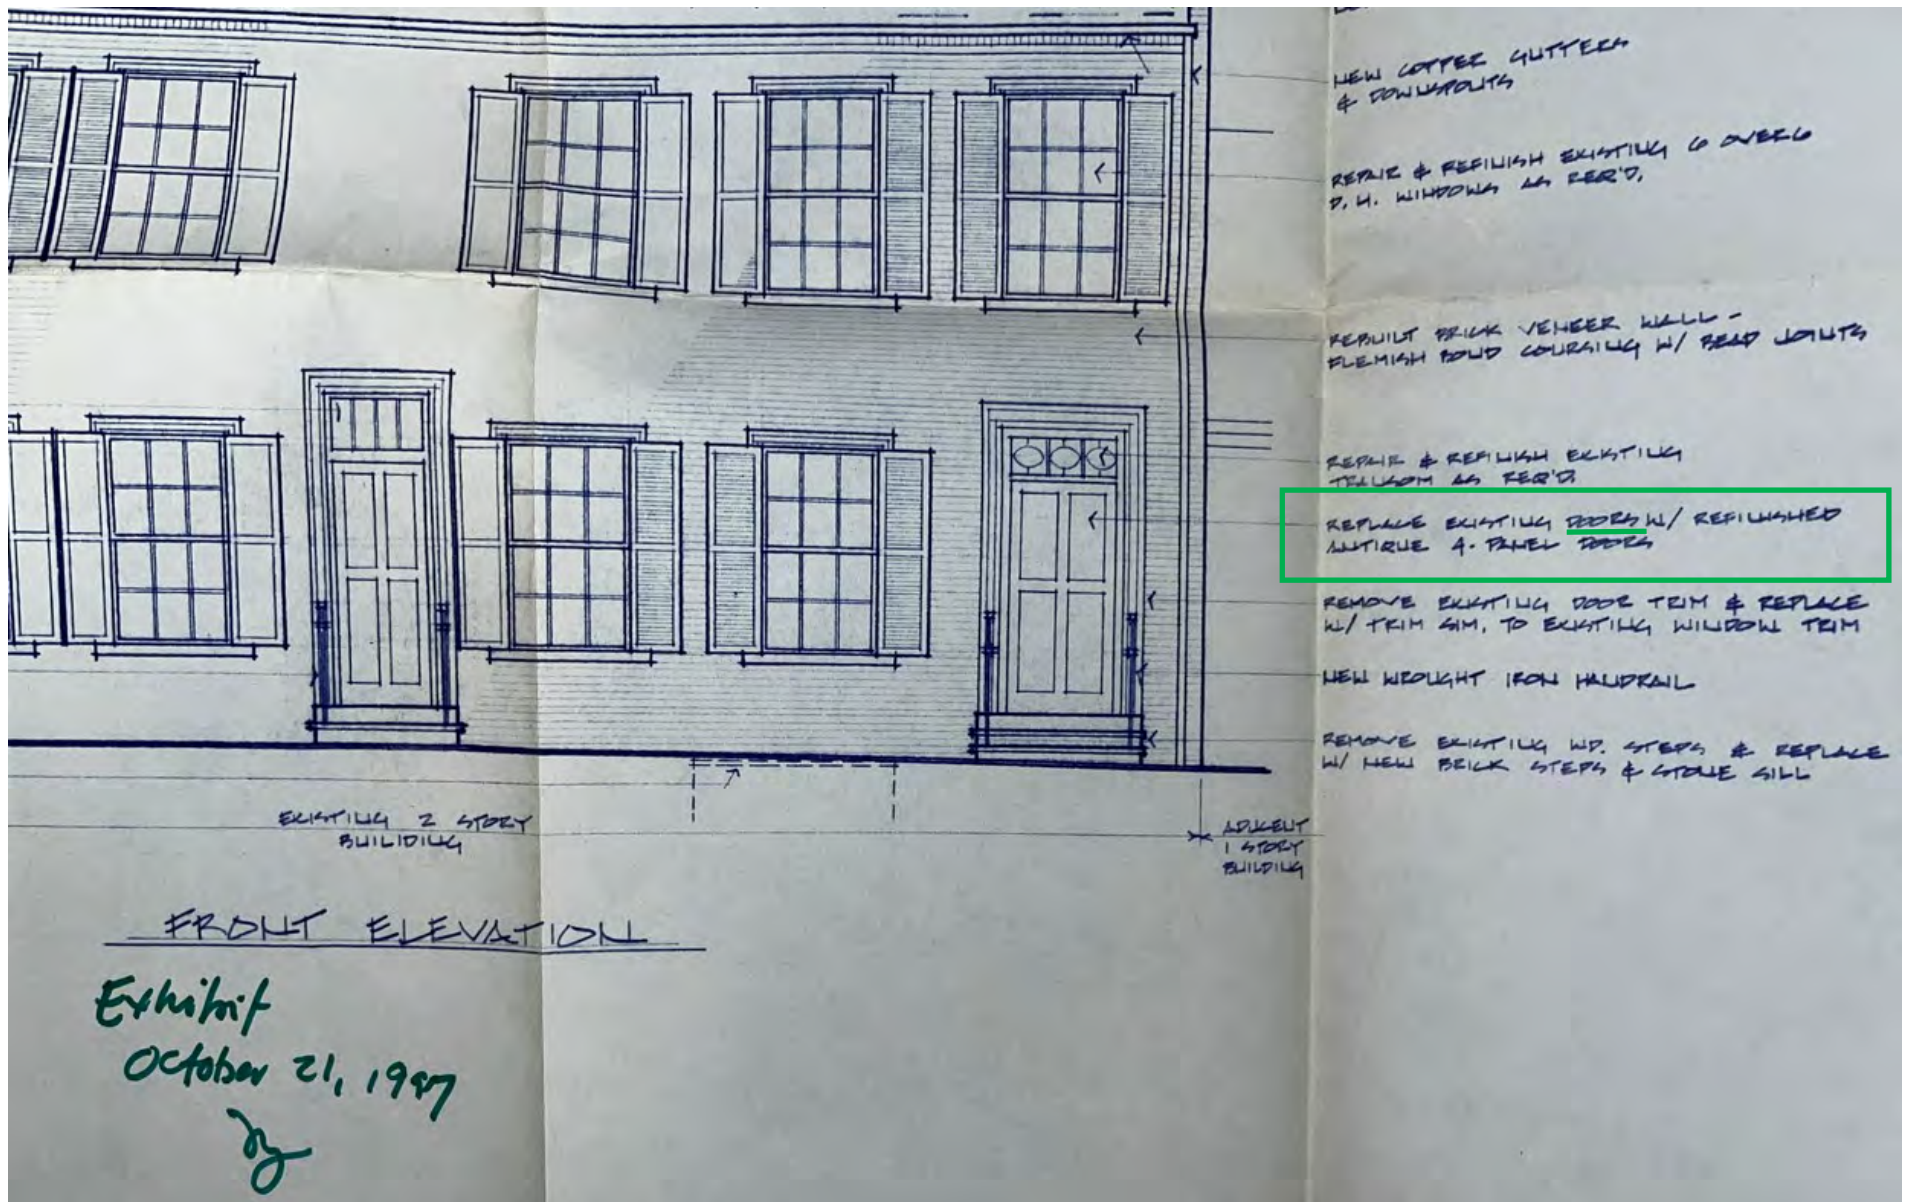 NEW COPPER GUTTERS
& DOWNSPOUTS
REPAIR & REFINISH EXISTING 6 OVER 6
D. H. WINDOWS AS REQ'D.
REBUILT BRICK VENEER WALL -
FLEMISH BOND COURSING W/ BEAD JOINTS
REPAIR & REFINISH EXISTING
TRANSOM AS REQ'D.
REPLACE EXISTING DOORS W/ REFINISHED
ANTIQUE 4-PANEL DOORS
REMOVE EXISTING DOOR TRIM & REPLACE
W/ TRIM SIM. TO EXISTING WINDOW TRIM
NEW WROUGHT IRON HANDRAIL
REMOVE EXISTING WD. STEPS & REPLACE
W/ NEW BRICK STEPS & STONE SILL
EXISTING 2 STORY
BUILIDING
ADJACENT
1 STORY
BUILDING
FRONT ELEVATION
Exhibit
October 21, 1997